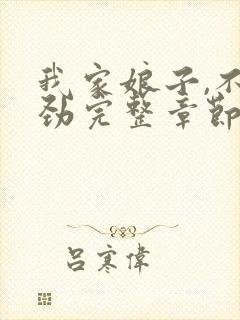 我家娘子,不
劲完整章節
呂寒偉